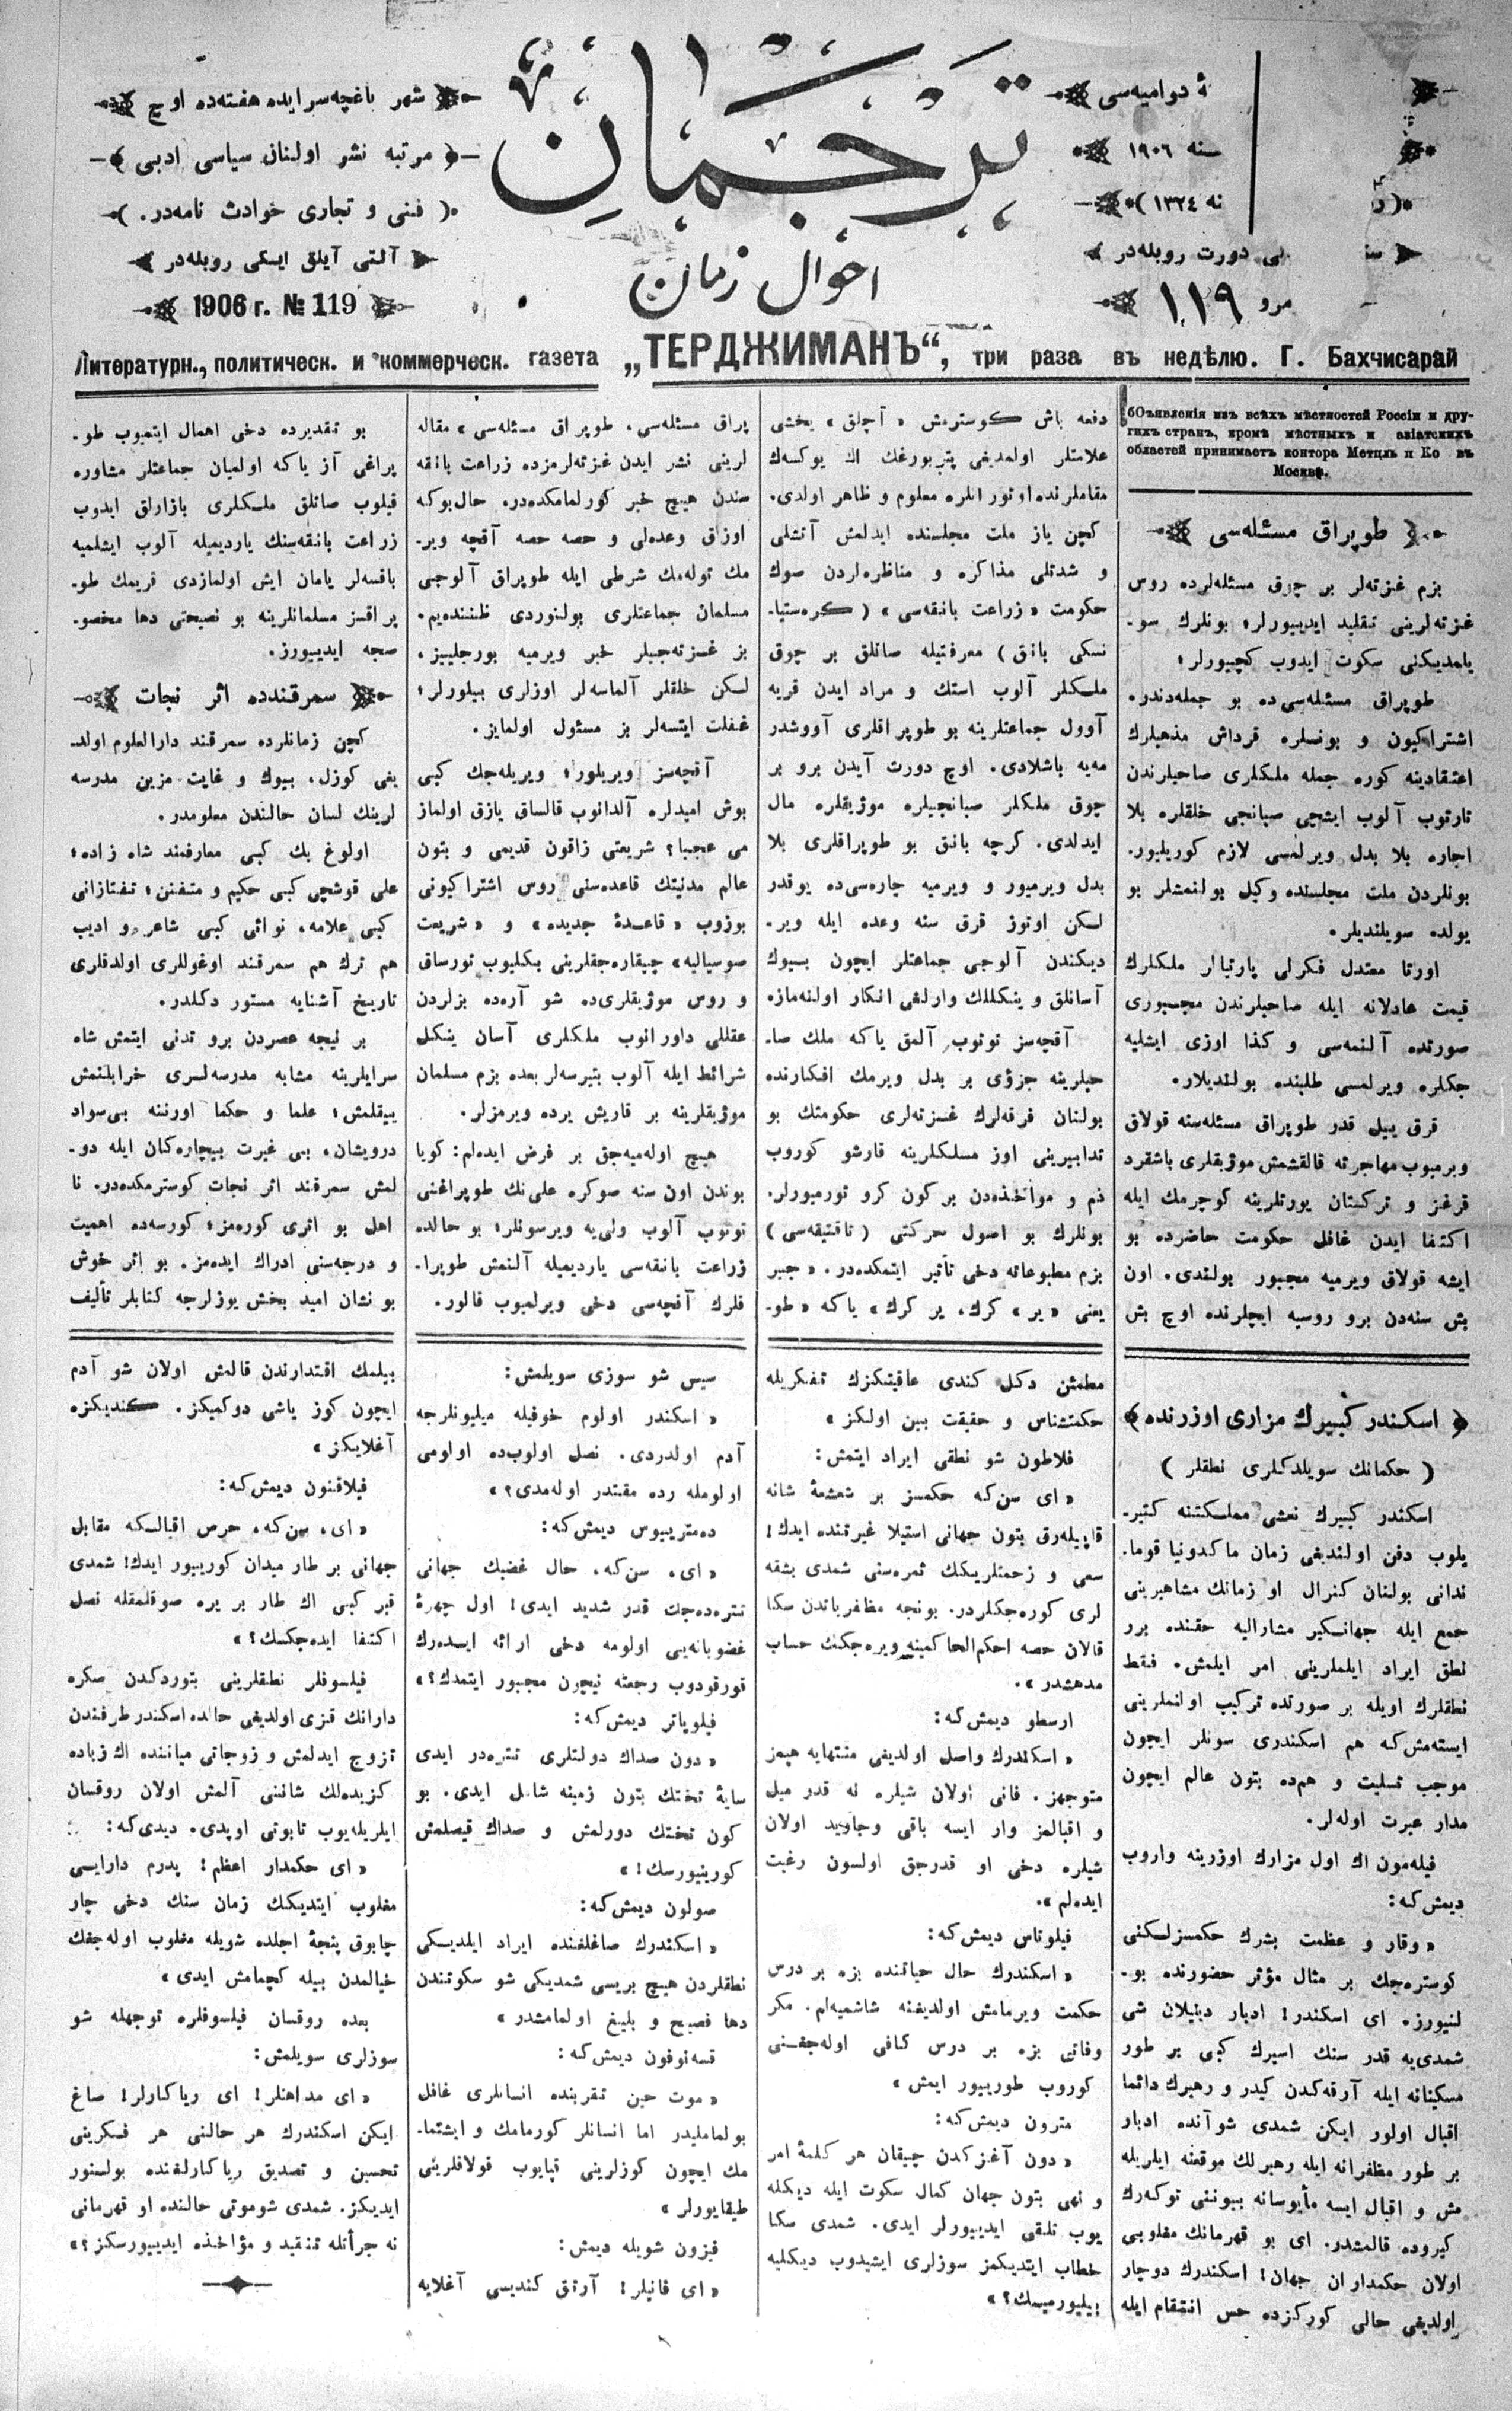 ترجمان
احوال زمان
شهر باغچه‌سرایده هفته‌ده اوچ
مرتبه نشر اولنان سیاسی ادبی
فنی و تجاری حوادث نامه‌در.
آلتی آیلق ایکی روبله‌در
1906 г. № 119
دوامیه‌سی
سنه ۱۹۰۶
نه ۱۳۲٤
دورت روبله‌در
مرو ۱۱۹
Литературн., политическ. и коммерческ. газета „ТЕРДЖИМАНЪ“, три раза въ недѣлю. Г. Бахчисарай
бОъявленія изъ всѣхъ мѣстностей Россіи и дру-
гихъ странъ, кромѣ мѣстныхъ и азіатскихъ
областей принимаетъ контора Метцль и Ко въ
Москвѣ.
طوپراق مسئله‌سی
بزم غزته‌لر بر چوق مسئله‌لرده روس
غزته‌لرینی تقلید ایدییورلر؛ بونلرك سو-
یامدیكنی سكوت ایدوب كچیورلر؛
طوپراق مسئله‌سی‌ده بو جمله‌دندره
اشتراكیون و بونلره قرداش مذهبلرك
اعتقادینه كوره جمله ملكلری صاحبلرندن
تارتوب آلوب ایشچی صبانجی خلقلره بلا
اجاره بلا بدل ویرلمسی لازم كوریلیور.
بونلردن ملت مجلسنده وكیل بولنمشلر بو
یولده سویلندیلر.
اورتا معتدل فكرلی پارتیالر ملكلرك
قیمت عادلانه ایله صاحبلرندن مجبوری
صورتده آلنمه‌سی و كذا اوزی ایشلیه
جكلره ویرلمسی طلبنده بولندیلار.
قرق ییل قدر طوپراق مسئله‌سنه قولاق
ویرمیوب مهاجرته قالقشمش موژیقلری باشقرد
قرغز و تركستان یورتلرینه كوچرمك ایله
اكتفا ایدن غافل حكومت حاضرده بو
ایشه قولاق ویرمیه مجبور بولندی. اون
بش سنه‌دن برو روسیه ایچلرنده اوچ بش
دفعه باش كوسترمش «آچلق» یخشی
علامتلر اولمدیغی پتربورغك اك یوكسك
مقاملرنده اوتورانلره معلوم و ظاهر اولدی.
كچن یاز ملت مجلسنده ایدلمش آتشلی
و شدتلی مذاكره و مناظره‌لردن صوك
حكومت «زراعت بانقه‌سی» (كره‌ستیا-
نسكی بانق) معرفتیله صاتلق بر چوق
ملكلر آلوب استك و مراد ایدن قریه
آوول جماعتلرینه بو طوپراقلری آووشدر
مه‌یه باشلادی. اوچ دورت آیدن برو بر
چوق ملكلر صبانچیلره موژیقلره مال
ایدلدی. كرچه بانق بو طوپراقلری بلا
بدل ویرمیور و ویرمیه چاره‌سی‌ده یوقدر
لكن اوتوز قرق سنه وعده ایله ویر-
دیكندن آلوجی جماعتلر ایچون بیوك
آسانلق و ینكللك وارلغی انكار اولنه‌ماز.
آقچه‌سز توتوب آلمق یاكه ملك صا-
حبلرینه جزؤی بر بدل ویرمك افكارنده
بولنان فرقه‌لرك غزته‌لری حكومتك بو
تدابیرینی اوز مسلكلرینه قارشو كوروب
ذم و مواخذه‌دن بركون كرو تورمیورلر.
بونلرك بو اصول حركتی (تاقتیقه‌سی)
بزم مطبوعاته دخی تأثیر ایتمكده‌در. «جیر
یعنی «یر» كرك، یر كرك» یاكه «طو-
پراق مسئله‌سی، طوپراق مسئله‌سی» مقاله
لرینی نشر ایدن غزته‌لرمزده زراعت بانقه
سندن هیچ خبر كورلمامكده‌در. حال‌بوكه
اوزاق وعده‌لی و حصه حصه آقچه ویر-
مك توله‌مك شرطی ایله طوپراق آلوجی
مسلمان جماعتلری بولنوردی ظننده‌یم.
بز غزته‌جیلر خبر ویرمیه بورجلییز.
لكن خلقلر آلماسه‌لر اوزلری بیلورلر؛
غفلت ایتسه‌لر بز مسئول اولمایز.
آقچه‌سز ویریلور؛ ویریله‌جك كبی
بوش امیدلره آلدانوب قالساق یازق اولماز
می عجبا؟ شریعتی زاقون قدیمی و بتون
عالم مدنیتك قاعده‌سنی روس اشتراكیونی
بوزوب «قاعدۀ جدیده» و «شریعت
صوسیالیه» چیقاره‌جقلرینی بكلیوب تورساق
و روس موژیقلری‌ده شو آره‌ده بزلردن
عقللی داورانوب ملكلری آسان ینكل
شرائط ایله آلوب بتیرسه‌لر بعده بزم مسلمان
موژیقلرینه بر قاریش یرده ویرمزلر.
هیچ اوله‌میه‌جق بر فرض ایده‌لم: كویا
بوندن اون سنه صوكره علی‌نك طوپراغنی
توتوب آلوب ولی‌یه ویرسونلر؛ بو حالده
زراعت بانقه‌سی یاردیمیله آلنمش طوپرا-
قلرك آقچه‌سی دخی ویرلمیوب قالور.
بو تقدیرده دخی اهمال ایتمیوب طو-
پراغی آز یاكه اولمیان جماعتلر مشاوره
قیلوب صاتلق ملكلری بازارلق ایدوب
زراعت بانقه‌سنك یاردیمیله آلوب ایشلمیه
باقسه‌لر یامان ایش اولمازدی قریمك طو-
پراقسز مسلمانلرینه بو نصیحتی دها مخصو-
صجه ایدییورز.
سمرقندده اثر نجات
كچن زمانلرده سمرقند دارالعلوم اولد-
یغی كوزل، بیوك و غایت مزین مدرسه
لرینك لسان حالندن معلومدر.
اولوغ بك كبی معارفمند شاه زاده؛
علی قوشچی كبی حكیم و متفنن؛ تفتازانی
كبی علامه، نوائی كبی شاعر و ادیب
هم ترك هم سمرقند اوغوللری اولدقلری
تاریخ آشنایه مستور دكلدر.
بر نیجه عصردن برو تدنی ایتمش شاه
سرایلرینه مشابه مدرسه‌لری خرابلنمش
ییقلمش؛ علما و حكما اورننه بی‌سواد
درویشان، بی غیرت بیچاره‌كان ایله دو-
لمش سمرقند اثر نجات كوسترمكده‌در. نا
اهل بو اثری كوره‌مز؛ كورسه‌ده اهمیت
و درجه‌سنی ادراك ایده‌مز. بو اثر خوش
بو نشان امید بخش یوزلرجه كتابلر تألیف
اسكندر كبیرك مزاری اوزرنده
(حكمانك سویلدكلری نطقلر)
اسكندر كبیرك نعشی مملكتنه كتیر-
یلوب دفن اولندیغی زمان ماكدونیا قوما-
ندانی بولنان كنرال او زمانك مشاهیرینی
جمع ایله جهانكیر مشارالیه حقنده برر
نطق ایراد ایلملرینی امر ایلمش. فقط
نطقلرك اویله بر صورتده تركیب اولنملرینی
ایسته‌مش‌كه هم اسكندری سونلر ایچون
موجب تسلیت و هم‌ده بتون عالم ایچون
مدار عبرت اوله‌لر.
فیله‌مون اك اول مزارك اوزرینه واروب
دیمش‌كه:
«وقار و عظمت بشرك حكمسزلكنی
كوستره‌جك بر مثال مؤثر حضورنده بو-
لنیورز. ای اسكندر! ادبار دینیلان شی
شمدی‌یه قدر سنك اسیرك كبی بر طور
مسكینانه ایله آرقه‌كدن كیدر و رهبرك دائما
اقبال اولور ایكن شمدی شو آنده ادبار
بر طور مظفرانه ایله رهبرلك موقعنه ایلریله
مش و اقبال ایسه مأیوسانه بیوننی توكه‌رك
كیروده قالمشدر. ای بو قهرمانك مغلوبی
اولان حكمداران جهان! اسكندرك دوچار
اولدیغی حالی كوركزده حس انتقام ایله
مطمئن دكل كندی عاقبتكزك تفكریله
حكمتشناس و حقیقت بین اولكز»
فلاطون شو نطقی ایراد ایتمش:
«ای سن‌كه حكمسز بر شعشعۀ شانه
قاپیله‌رق بتون جهانی استیلا غیرتنده ایدك!
سعی و زحمتلریكك ثمره‌سنی شمدی بشقه
لری كوره‌جكلردر. بونجه مظفریاتدن سكا
قالان حصه احكم‌الحاكمینه ویره‌جكك حساب
مدهشدر».
ارسطو دیمش‌كه:
«اسكندرك واصل اولدیغی منتهایه هپمز
متوجهز. فانی اولان شیلره نه قدر میل
و اقبالمز وار ایسه باقی وجاوید اولان
شیلره دخی او قدرجق اولسون رغبت
ایده‌لم».
فیلوتاس دیمش‌كه:
«اسكندرك حال حیاتنده بزه بر درس
حكمت ویرمامش اولدیغنه شاشمیه‌ام. مكر
وفاتی بزه بر درس كافی اوله‌جغنی
كوروب طورییور ایمش»
مترون دیمش‌كه:
«دون آغزكدن چیقان هر كلمۀ امر
و نهی بتون جهان كمال سكوت ایله دیكله
یوب تلقی ایدییورلر ایدی. شمدی سكا
خطاب ایتدیكمز سوزلری ایشیدوب دیكلیه
بیلیورمیسك؟»
سیس شو سوزی سویلمش:
«اسكندر اولوم خوفیله میلیونلرجه
آدم اولدردی. نصل اولوب‌ده اولومی
اولومله رده مقتدر اوله‌مدی؟»
ده‌متریبوس دیمش‌كه:
«ای، سن‌كه، حال غضبك جهانی
تتره‌ده‌جك قدر شدید ایدی! اول چهرۀ
غضوبانه‌یی اولومه دخی ارائه ایده‌رك
قورقودوب رجعته نیچون مجبور ایتمدك؟»
فیلوپاتر دیمش‌كه:
«دون صداك دولتلری تتره‌در ایدی
سایۀ تختك بتون زمینه شامل ایدی. بو
كون تختك دورلمش و صداك قیصلمش
كورینیورسك!»
صولون دیمش‌كه:
«اسكندرك صاغلغنده ایراد ایلدیكی
نطقلردن هیچ بریسی شمدیكی شو سكوتندن
دها فصیح و بلیغ اولمامشدر»
قسه‌نوفون دیمش‌كه:
«موت حین تقربنده انسانلری غافل
بولمامالیدر اما انسانلر كورمامك و ایشتما-
مك ایچون كوزلرینی قپایوب قولاقلرینی
طیقایورلر»
فیزون شویله دیمش:
«ای فانیلر! آرتق كندیسی آغلایه
بیلمك اقتدارندن قالمش اولان شو آدم
ایچون كوز یاشی دوكمیكز. كندیكزه
آغلایكز»
فیلاقنون دیمش‌كه:
«ای، سن‌كه، حرص اقبالكه مقابل
جهانی بر طار میدان كورییور ایدك! شمدی
قبر كبی اك طار بر یره صوقلمقله نصل
اكتفا ایده‌جكسك؟»
فیلسوفلر نطقلرینی بتوردكدن صكره
دارانك قزی اولدیغی حالده اسكندر طرفندن
تزوج ایدلمش و زوجاتی میاننده اك زیاده
كزیده‌لك شاننی آلمش اولان روقسان
ایلریله‌یوب تابوتی اوپدی. دیدی‌كه:
«ای حكمدار اعظم! پدرم دارایی
مغلوب ایتدیكك زمان سنك دخی چار
چابوق پنجۀ اجلده شویله مغلوب اوله‌جغك
خیالمدن بیله كچمامش ایدی»
بعده روقسان فیلسوفلره توجهله شو
سوزلری سویلمش:
«ای مداهنلر! ای ریاكارلر! صاغ
ایكن اسكندرك هر حالنی هر فكرینی
تحسین و تصدیق ریاكارلغنده بولنور
ایدیكز. شمدی شوموتی حالنده او قهرمانی
نه جرأتله تنقید و مؤاخذه ایدییورسكز؟»